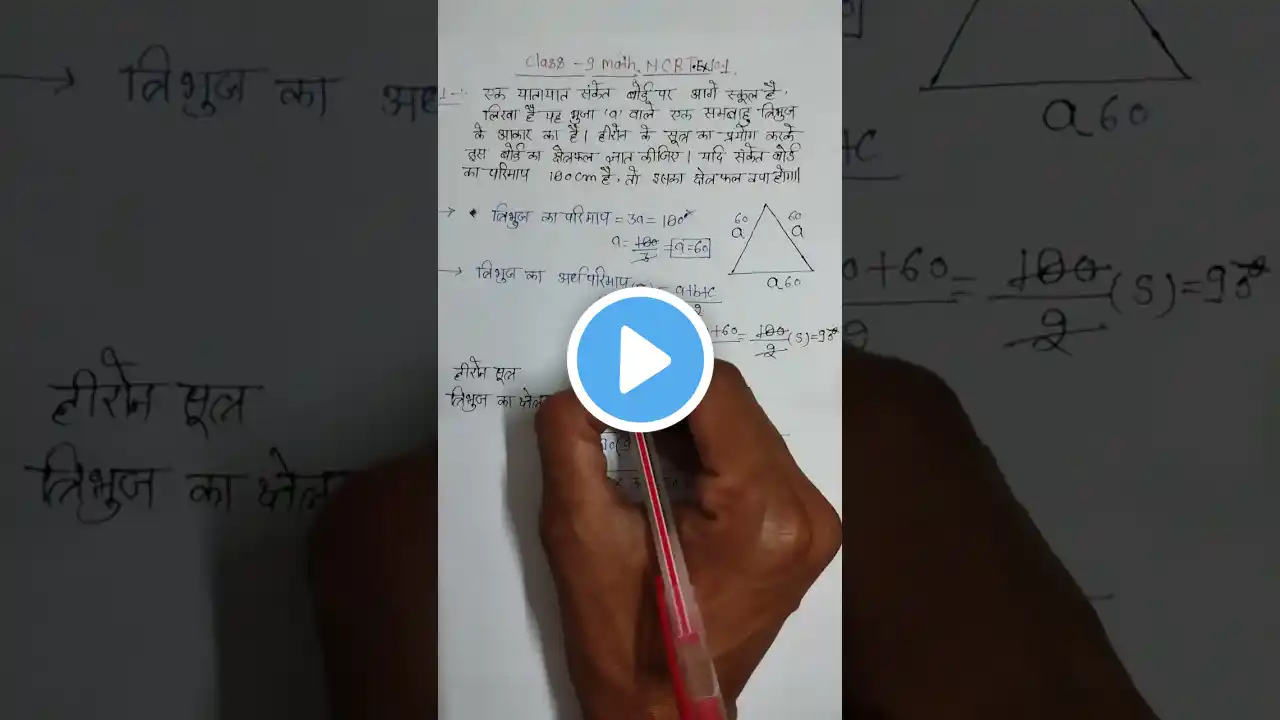 Class - 9 math. NCRT. Ex 10.1.
1 - एक यातायात संकेत बोर्ड पर आगे स्कूल है,
लिखा है यह भुजा 'a' वाले एक समबाहु त्रिभुज
के आकार का है। हीरोन के सूत्र का प्रयोग करके
इस बोर्ड का क्षेत्रफल ज्ञात कीजिए। यदि संकेत बोर्ड
का परिमाप 180 cm है, तो इसका क्षेत्रफल क्या होगा।
→ त्रिभुज का परिमाप = 3a = 180°
a = 180/3 = a = 60
60 60
a a
a 60
→ त्रिभुज का अर्धपरिमाप = a+b+c/2
+60 = 180/2 (S) = 90
हीरोन सूत्र
त्रिभुज का क्षेत्र
→ त्रिभुज का अर्ध
a 60
+c
0+60 = 180/2 (S) = 90
हीरोन सूत्र
त्रिभुज का क्षेत्र